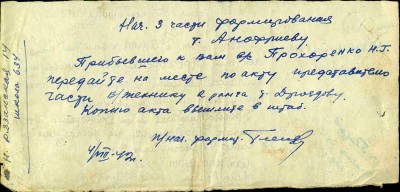 Нач. 3 части формирования
т. Анофриеву.
Прибывшего к вам вр. Прохоренко Н.Г.
передайте на месте по акту представителю
части в/технику 2 ранга т. Дроздову.
Копию акта вышлите в штаб.
п/нач. формир.
4/VIII-42г.
Н. Рязанская 14
школа 634